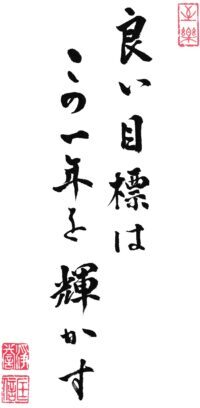 良い目標は
この一年を輝かす